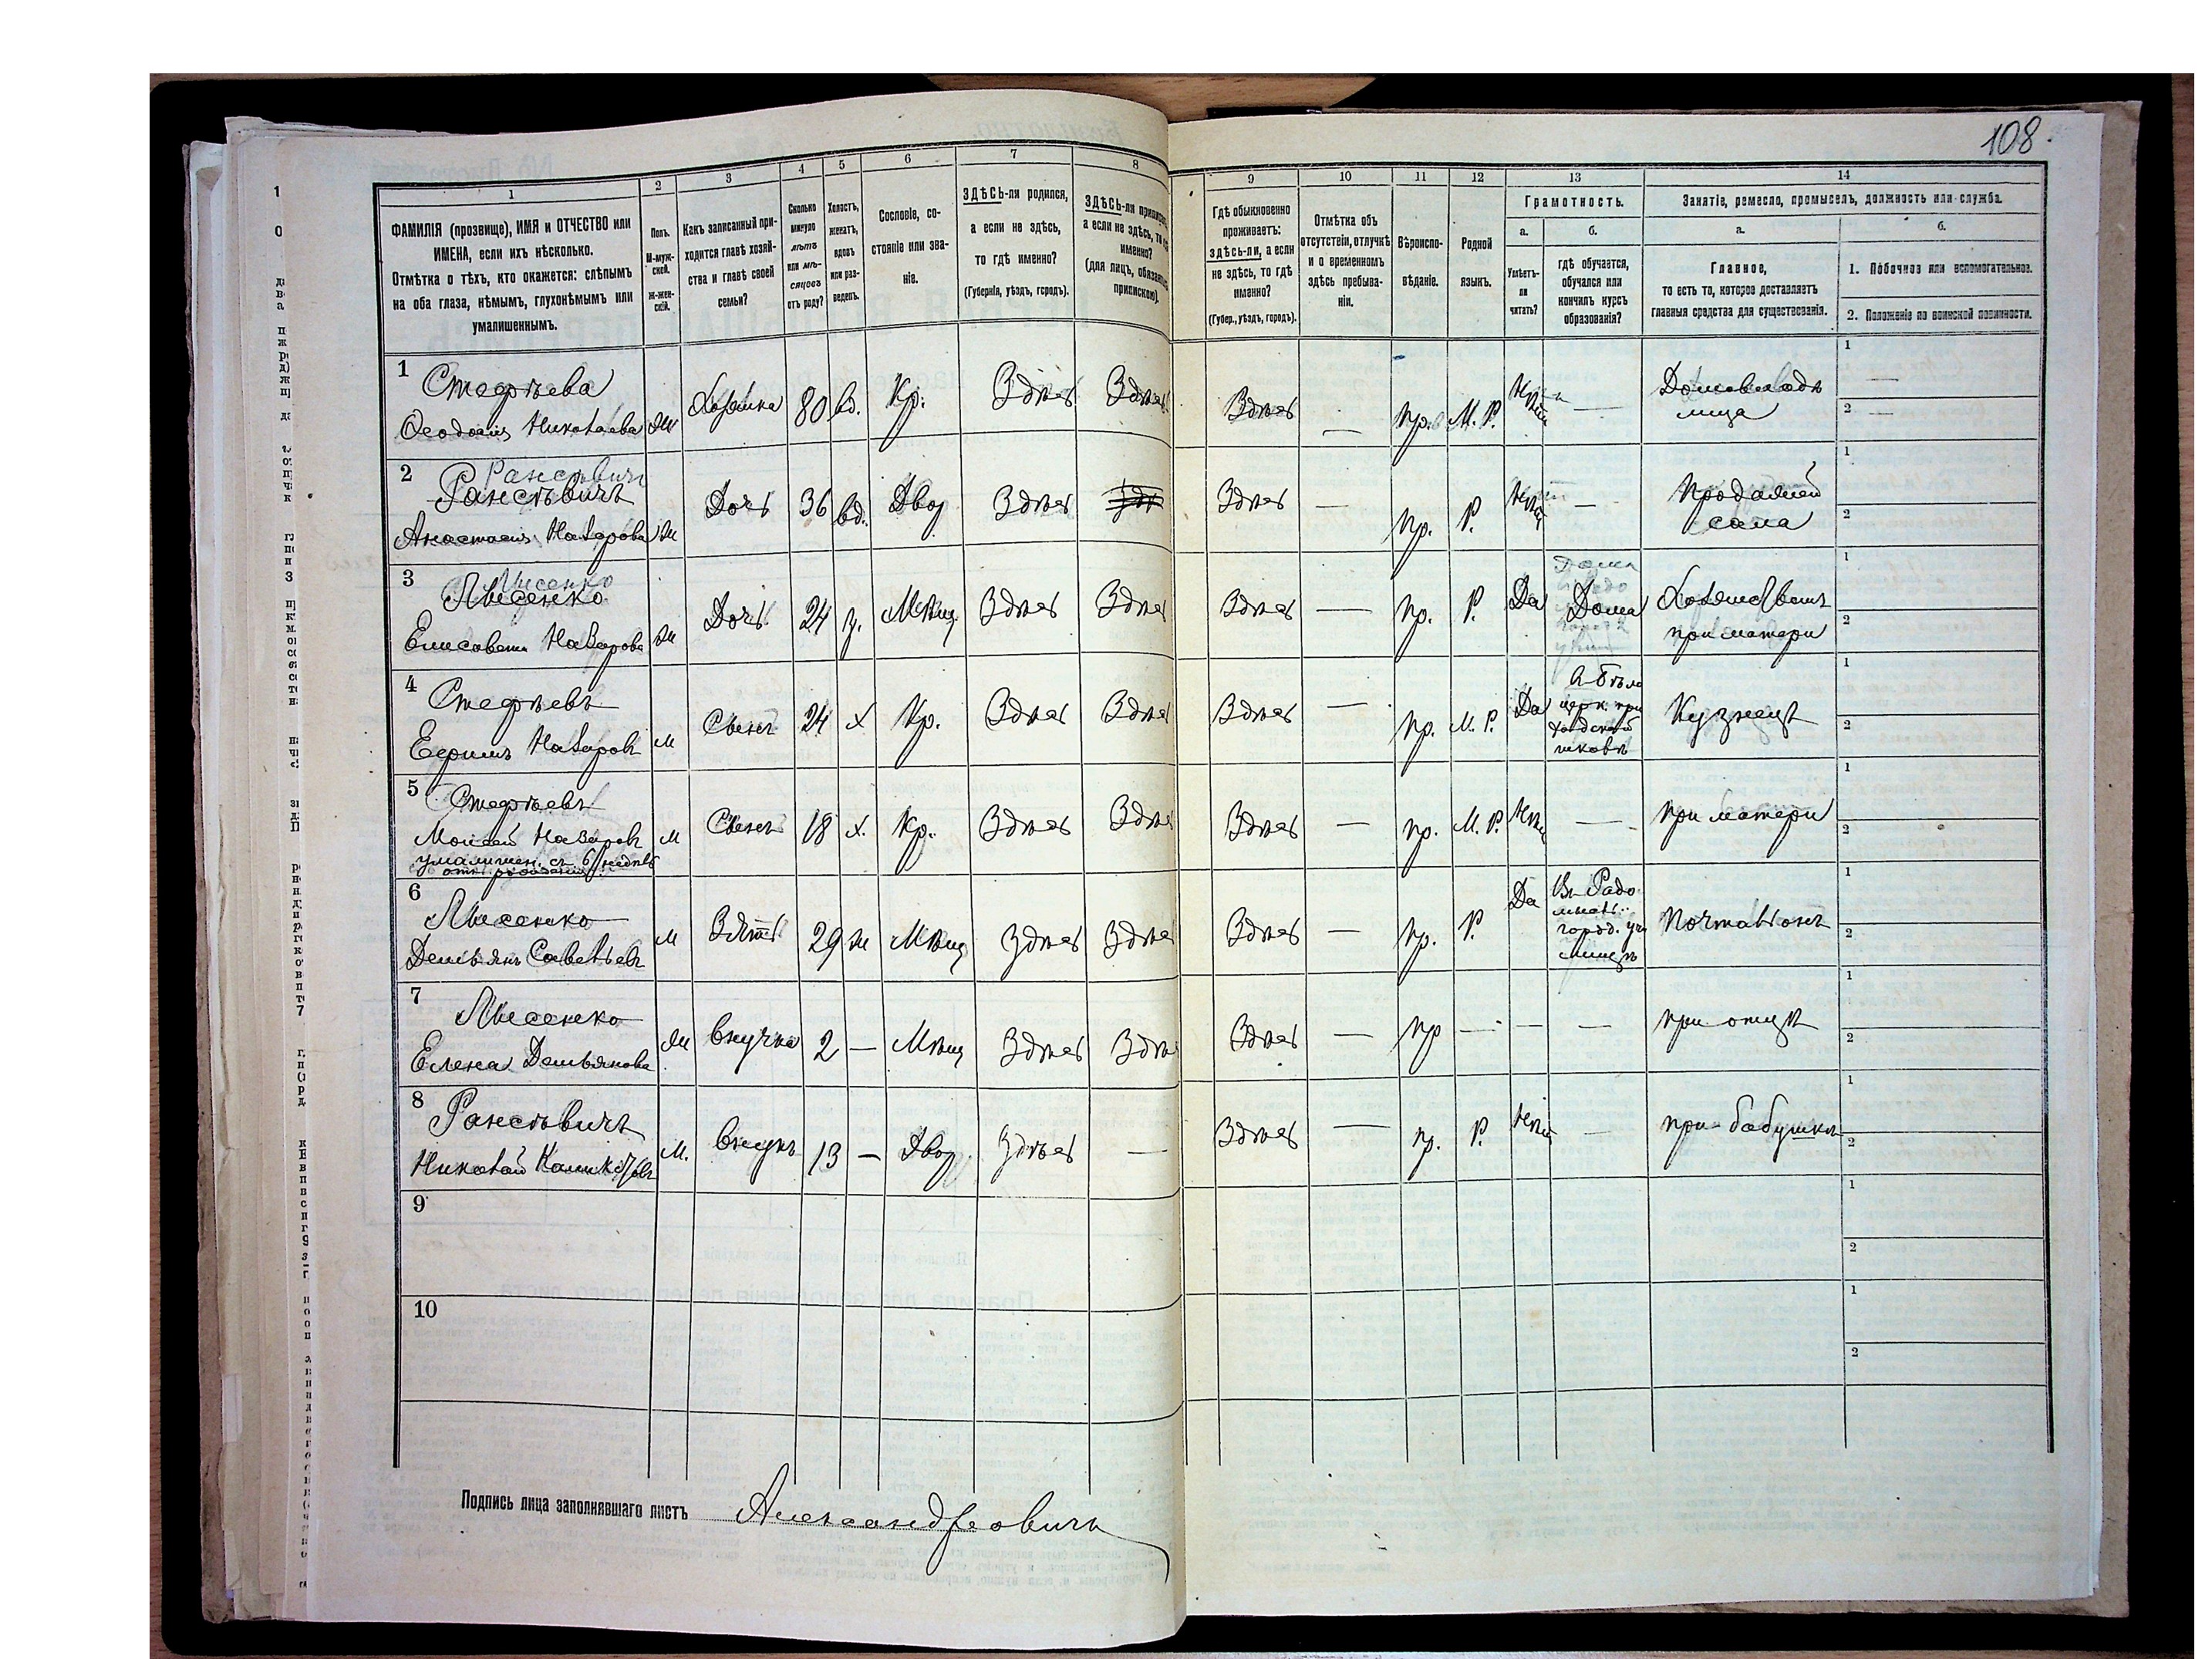 108.
1
2
3
4
5
6
7
8
9
10
11
12
13
14
ФАМИЛІЯ (прозвище), ИМЯ и ОТЧЕСТВО или
ИМЕНА, если ихъ нѣсколько.
Отмѣтка о тѣхъ, кто окажется: слѣпымъ
на оба глаза, нѣмымъ, глухонѣмымъ или
умалишеннымъ.
Полъ.
М-муж-
ской.
Ж-жен-
скій.
Какъ записанный при-
ходится главѣ хозяй-
ства и главѣ своей
семьи?
Сколько
минуло
лѣтъ
или мѣ-
сяцовъ
отъ роду?
Холостъ,
женатъ,
вдовъ
или раз-
веденъ.
Сословіе, со-
стояніе или зва-
ніе.
ЗДѢСЬ-ли родился,
а если не здѣсь,
то гдѣ именно?
(Губернія, уѣздъ, городъ).
ЗДѢСЬ-ли приписанъ,
а если не здѣсь, то гдѣ
именно?
(для лицъ, обязанныхъ
припискою).
Гдѣ обыкновенно
проживаетъ:
здѣсь-ли, а если
не здѣсь, то гдѣ
именно?
(Губер., уѣздъ, городъ).
Отмѣтка объ
отсутствіи, отлучкѣ
и о временномъ
здѣсь пребыва-
ніи.
Вѣроиспо-
вѣданіе.
Родной
языкъ.
Грамотность.
а.
Умѣетъ-
ли
читать?
б.
гдѣ обучается,
обучался или
кончилъ курсъ
образованія?
Занятіе, ремесло, промыселъ, должность или служба.
а.
Главное,
то есть то, которое доставляетъ
главныя средства для существованія.
б.
1. Побочное или вспомогательное.
2. Положеніе по воинской повинности.
1 Стефѣева
Феодосія Николаева Ж Хозяйка 80 вд. Кр. Здѣсь Здѣсь Здѣсь — Пр. М. Р. Нѣтъ — Домовладѣ
лица
1 —
2 —
2 Рансевичъ
Рансевичъ
Анастасія Назарова Ж Дочь 36 вд. Двор Здѣсь Здѣсь — Пр. Р. Нѣтъ — Продажей
сала
1
2
3 Лысенко
Лысенко
Елисавета Назарова Ж Дочь 24 з. Мѣщ. Здѣсь Здѣсь Здѣсь — Пр. Р. Да Дома Хозяйствомъ
при матери
1
2
4 Стефѣевъ
Ефимъ Назаровъ М Сынъ 24 х Кр. Здѣсь Здѣсь Здѣсь — Пр. М. Р. Да
церк. при
ходской
школѣ
Кузнецъ
1
2
5 Стефѣевъ
Моисей Назаровъ М Сынъ 18 х. Кр. Здѣсь Здѣсь Здѣсь — Пр. М. Р. Нѣтъ — при матери
умалишен. съ 6 недѣль
отъ рожденія
1
2
6 Лысенко
Демьянъ Савельевъ М Зять 29 ж Мѣщ Здѣсь Здѣсь Здѣсь — Пр. Р. Да
Въ Радо
мысль..
город. учи
лищѣ
Почтальонъ
1
2
7 Лысенко
Елена Демьянова Ж Внучка 2 — Мѣщ Здѣсь Здѣсь Здѣсь — Пр — — — при отцѣ
1
2
8 Рансевичъ
Николай М. Внукъ 13 — Двор. Здѣсь — Здѣсь — Пр. Р. Нѣтъ — при бабушкѣ
1
2
9
1
2
10
1
2
Подпись лица заполнявшаго листъ Александровичъ